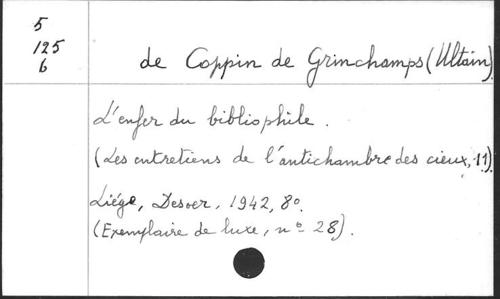 5
125
6
de Coppin de Grinchamps (Ultain)
L'enfer du bibliophile.
(Les entretiens de l'antichambre des cieux, 11)
Liége, Desoer, 1942, 8º.
(Exemplaire de luxe, nº 28).